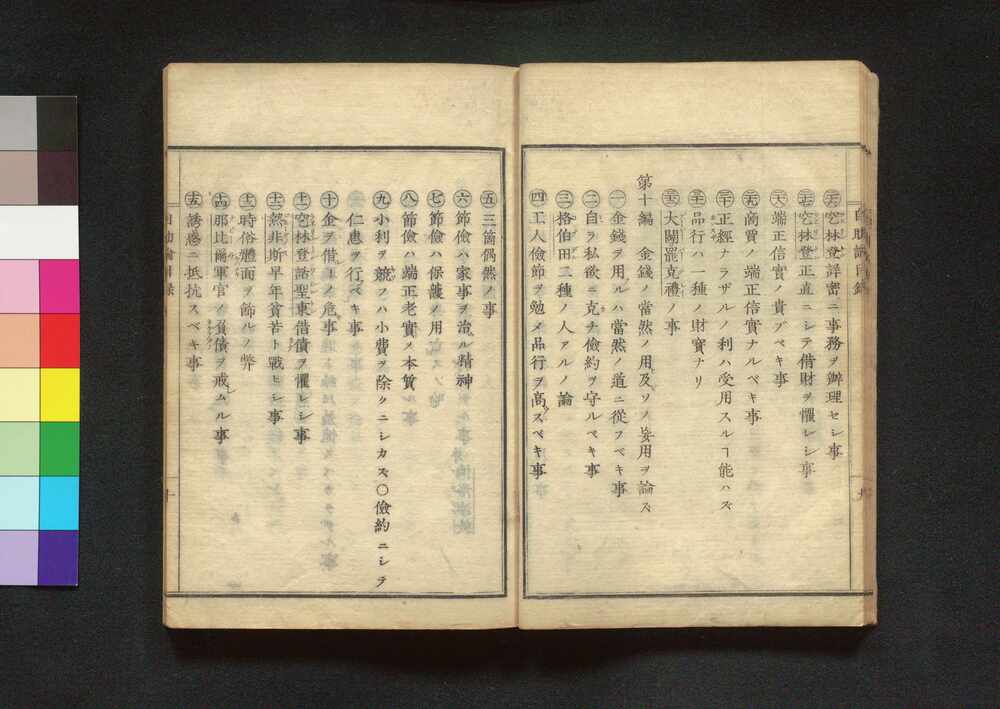 ㊱空林登詳密ニ事務ヲ辦理セシ事
空林登正直ニシテ借財ヲ懼レシ事
端正信實ノ貴ブベキ事
商賈ノ端正信實ナルベキ事
正經ナラザルノ利ハ受用スルヿ能ハズ
品行ハ一種ノ財寶ナリ
大闢罷克禮ノ事
第十編 金錢ノ當然ノ用及ソノ妄用ヲ論ズ
㊀金錢ヲ用ルハ當然ノ道ニ從フベキ事
㊁自ラ私欲ニ克チ儉約ヲ守ルベキ事
㊂格伯田二種ノ人アルノ論
㊃工人儉節ヲ勉メ品行ヲ高スベキ事
㊄三箇偶然ノ事
㊅節儉ハ家事ヲ治ル精神
㊆節儉ハ保護ノ用
㊇節儉ハ端正老實ノ本質
㊈小利ヲ競フハ小費ヲ除クニシカズ〇儉約ニシテ
仁惠ヲ行ベキ事
㊉金ヲ借ルノ危事
空林登話聖東借債ヲ懼レシ事
熱非斯早年貧苦ト戰ヒシ事
時俗體面ヲ飾ルノ弊
那比爾軍官ノ負債ヲ戒ムル事
誘惑ニ抵抗スベキ事